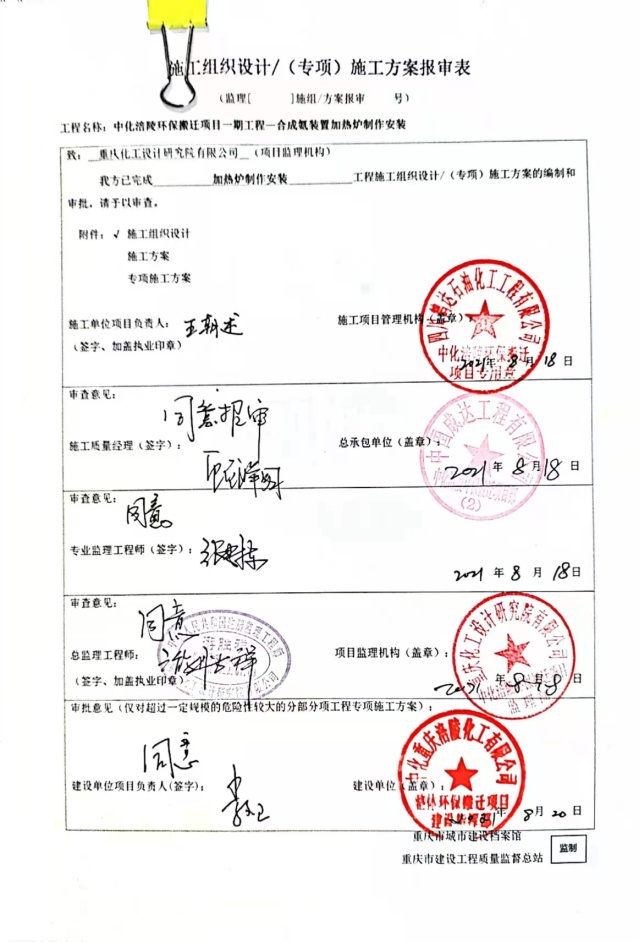 施工组织设计/（专项）施工方案报审表
（监理[ ]施组/方案报审 号）
工程名称：中化涪陵环保搬迁项目一期工程—合成氨装置加热炉制作安装
致：重庆化工设计研究院有限公司（项目监理机构）
我方已完成 加热炉制作安装 工程施工组织设计/（专项）施工方案的编制和
审批，请予以审查。
附件：√ 施工组织设计
施工方案
专项施工方案
施工单位项目负责人： 施工项目管理机构（盖章）：
（签字、加盖执业印章） 2021年 8 月 18 日
中化涪陵环保搬迁
项目专用章
审查意见：
同意报审
施工质量经理（签字）： 总承包单位（盖章）：
中国成达工程有限公司
2021 年 8 月 18 日
（2）
审查意见：
同意
专业监理工程师（签字）：
2021 年 8 月 18 日
审查意见：
同意
总监理工程师： 项目监理机构（盖章）：
重庆化工设计研究院有限公司
（签字、加盖执业印章） 2021 年 8 月 18 日
审批意见（仅对超过一定规模的危险性较大的分部分项工程专项施工方案）：
同意
建设单位项目负责人(签字)： 建设单位（盖章）：
中化重庆涪陵化工有限公司
整体环保搬迁项目
2021 年 8 月 20 日
重庆市城市建设档案馆
重庆市建设工程质量监督总站 监制